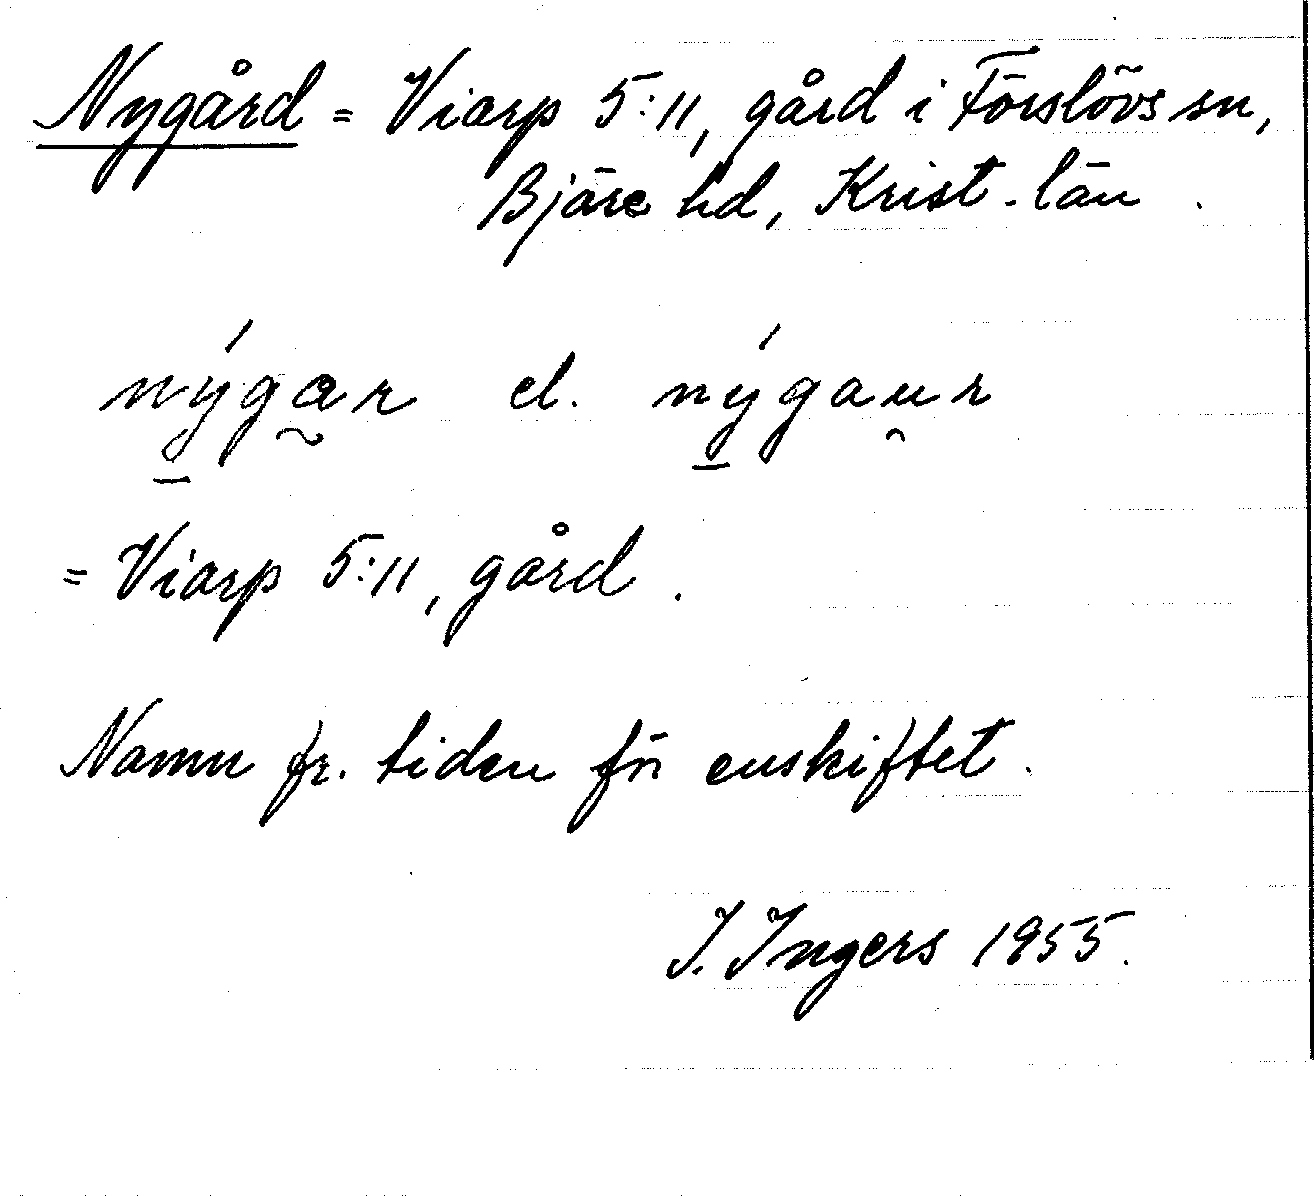 Nygård = Viarp 5:11, gård i Förslövs sn,
Bjäre hd, Krist. län.
nýga̰r el. nýgau̯r
= Viarp 5:11, gård.
Namn fr. tiden för enskiftet.
I. Ingers 1955.